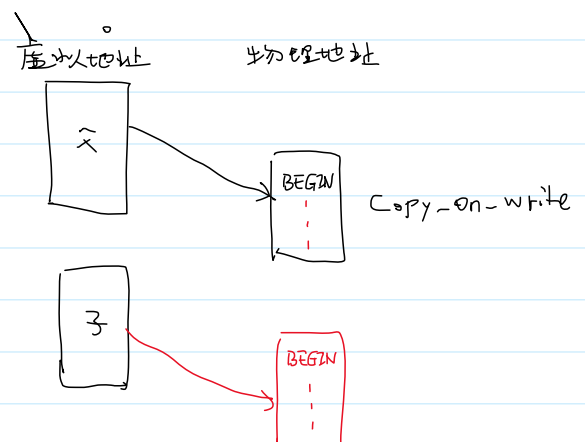 虚拟地址 物理地址
父
BEGIN
Copy_on_write
子
BEGIN